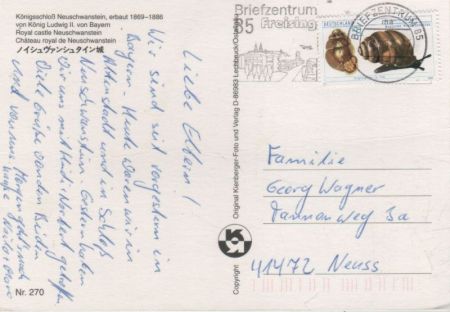 Königsschloß Neuschwanstein, erbaut 1869–1886
von König Ludwig II. von Bayern
Royal castle Neuschwanstein
Château royal de Neuschwanstein
ノイシュヴァンシュタイン城
Liebe Eltern!
Wir sind seit vorgestern in
Bayern. Heute waren wir in
Altenstadt und in Schloß
Neuschwanstein. Gestern haben
wir uns mit getroffen
Viele Grüße von den Beiden
und von uns
Nr. 270
Original Kienberger-Foto und Verlag D-86983 Lechbruck/Ostallgäu
Copyright
Briefzentrum
85
Freising
DEUTSCHLAND
BRIEFZENTRUM 85
Familie
Georg Wagner
Tannenweg 3a
41472 Neuss